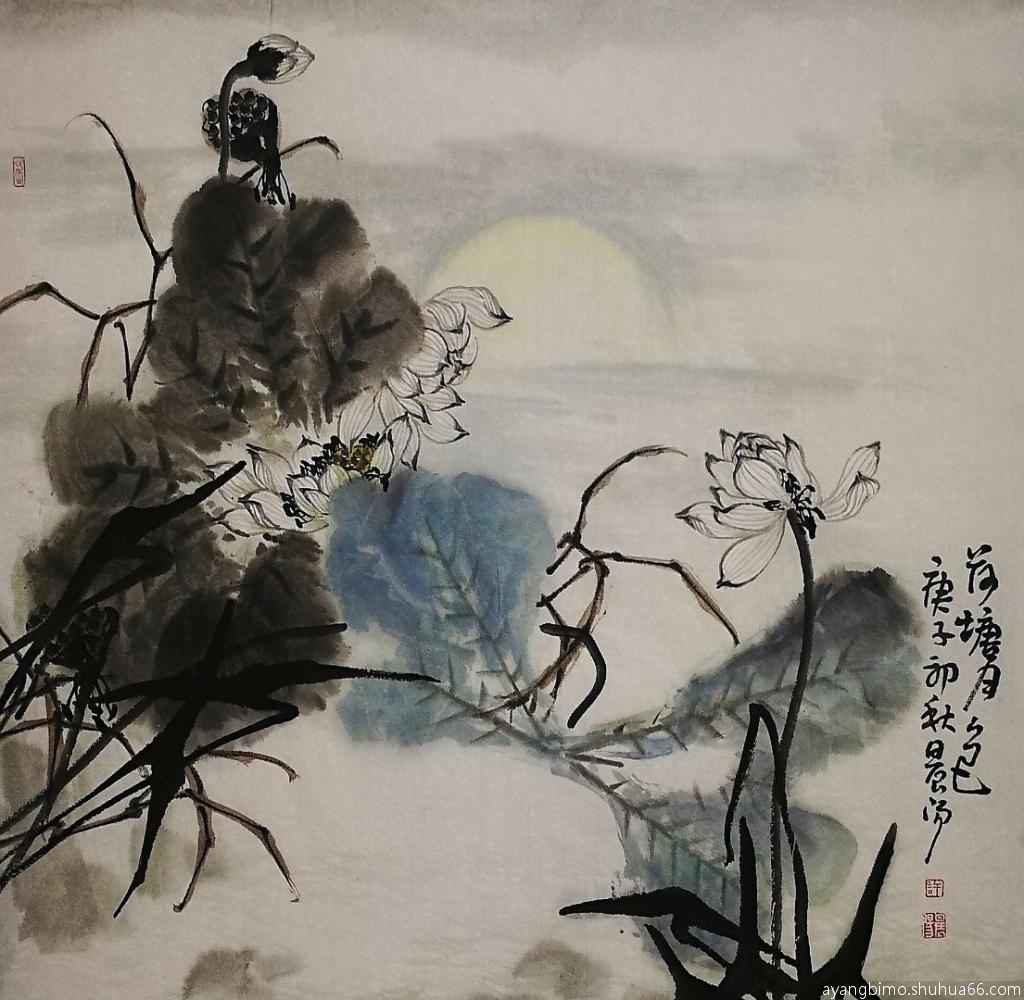 荷塘月色
庚子初秋晨阳
許
ayangbimo.shuhua66.com